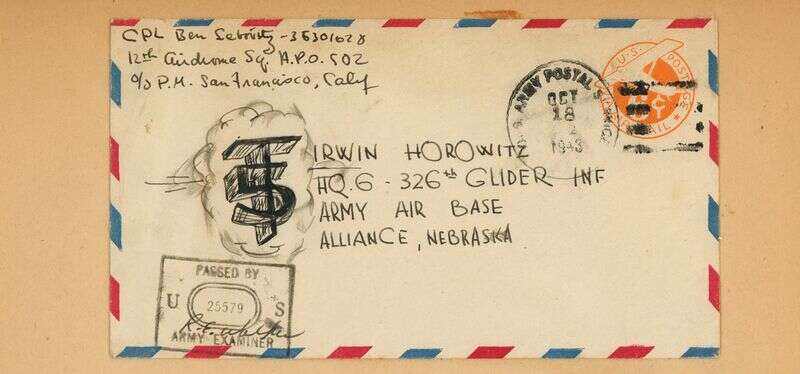 CPL Ben Sebovitz - 35301628
12th Airdrome Sq. A.P.O. 502
c/o P.M. San Francisco, Calif
U.S. ARMY POSTAL SERVICE
OCT
18
1943
U.S. POSTAGE
AIR MAIL
IRWIN HOROWITZ
HQ. 6 - 326th GLIDER INF
ARMY AIR BASE
ALLIANCE, NEBRASKA
PASSED BY
U 25579 S
ARMY EXAMINER